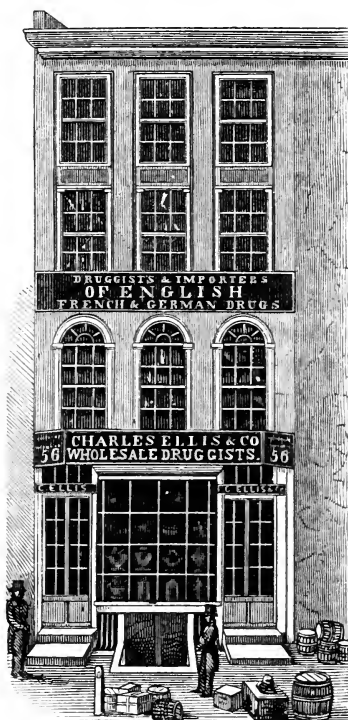 DRUGGISTS & IMPORTERS
OF ENGLISH
FRENCH & GERMAN DRUGS
CHARLES ELLIS & CO
WHOLESALE DRUGGISTS.
56
56
C. ELLIS
C. ELLIS & Co